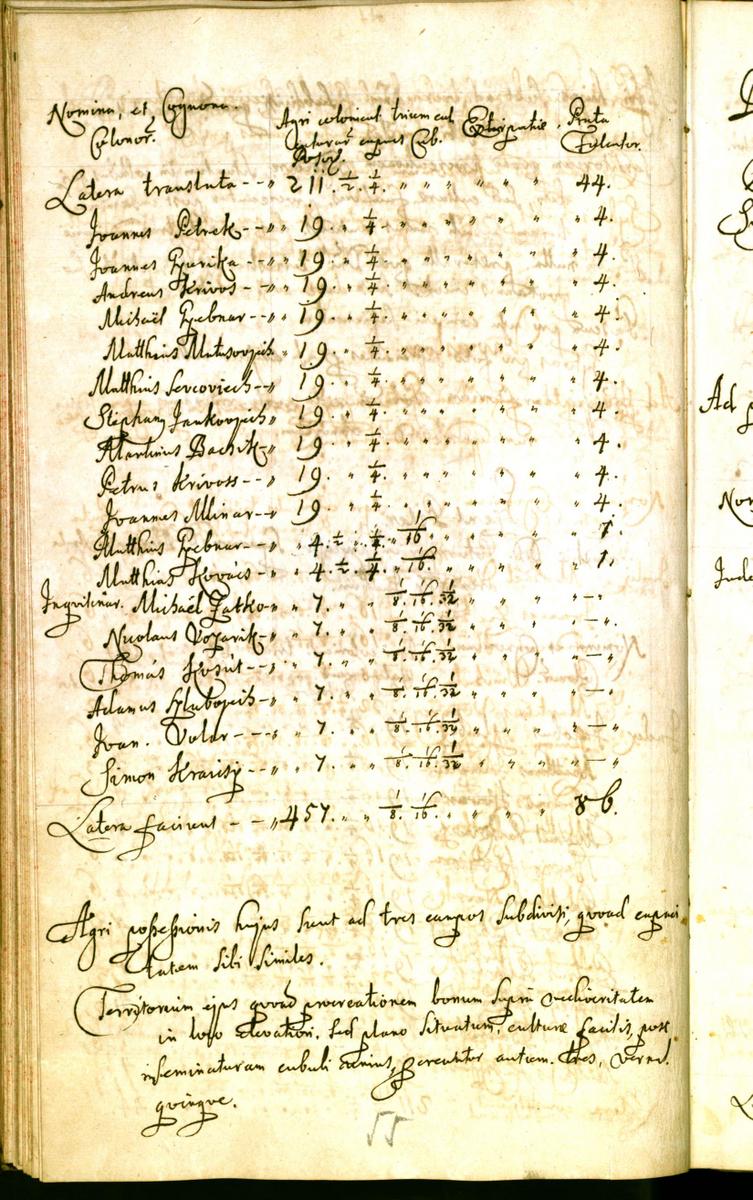 Nomina, et Cognom. Agri colonical. trium cal- Extirpatitiæ. Prata
Colonor. caturar capiunt Cub. Falcator.
Poson.
Latera translata -- " 211. 1/2. 1/4. " " " " " 44.
Joannes Petrek -- " 19. " 1/4 " " " " " " 4.
Joannes Gyurika -- " 19. " 1/4. " " " " " " 4.
Andreas Krivos -- " 19. " 1/4. " " " " " " 4.
Michaël Hrebnar -- " 19. " 1/4. " " " " " " 4.
Matthæus Matusovich " 19. " 1/4. " " " " " " 4.
Matthias Sevcovich -- " 19. " 1/4. " " " " " " 4.
Stephany Jankovich " 19. " 1/4. " " " " " " 4.
Martinus Bachik -- " 19. " 1/4. " " " " " " 4.
Petrus Krivoss -- " 19. " 1/4. " " " " " " 4.
Joannes Mlinar -- " 19. " 1/4. " " " " " " 4.
Matthias Hrebnar -- " 4. 1/2. " 1/4. " 1/16. " " " " 1.
Matthias Kovács -- " 4. 1/2. 1/4. " 1/16. " " " " 1.
Inqvilinar. Michaël Zatko -- " 7. " " 1/8. 1/16. 1/32 " " " " — "
Nicolaus Vozarik -- " 7. " " 1/8. 1/16. 1/32 " " " " — "
Thomás Kosút -- " 7. " " 1/8. 1/16. 1/32 " " " " — "
Adamus -- " 7. " " 1/8. 1/16. 1/32 " " " " — "
Joan. Volár -- " 7. " " 1/8. 1/16. 1/32 " " " " — "
Simon -- " 7. " " 1/8. 1/16. 1/32 " " " " — "
Latera faciunt -- " 457. " " 1/8. 1/16. " " " " 86.
Agri possessionis hujus sunt ad tres campos subdivisi, qvoad capaci
tatem sibi similes.
Territorium ejus qvoad procreationem bonum supra mediocritatem
in loco elevatiori, sed plano situatum, culturæ facilis, post
inseminaturam cubuli unius, percutitur autum. tres, vernal.
qvinqve.
55